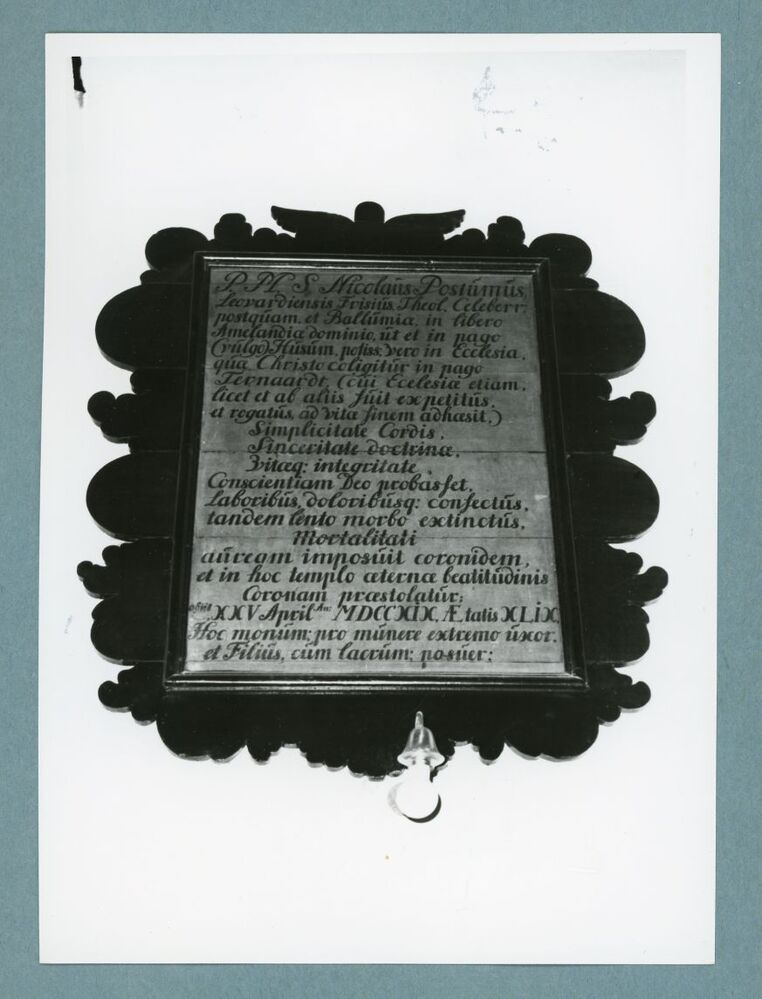 P. M. S. Nicolaüs Postümüs,
Leovardiensis Frisiüs Theol. Celeberr:
postqüam, et Ballümiæ, in libero
Amelandiæ dominio, üt et in pago
(vülgo) Hüsüm, potiss: vero in Ecclesia,
qüæ Christo coligitür in pago
Ternaardt, (cüi Ecclesiæ etiam,
licet et ab aliis füit expetitüs,
et rogatüs, ad vitæ finem adhæsit,)
Simplicitate Cordis,
Sinceritate doctrinæ,
Vitæq: integritate,
Conscientiam Deo probasset,
Laboribüs, doloribüsq: confectüs,
tandem lento morbo extinctüs,
Mortalitati
aüream imposüit coronidem,
et in hoc templo æternæ beatitüdinis
Coronam præstolatür;
obiit XXV April An: MDCCXIX, Ætatis XLIX,
Hoc monüm: pro münere extremo üxor.
et Filiüs, cüm lacrüm: posüer: